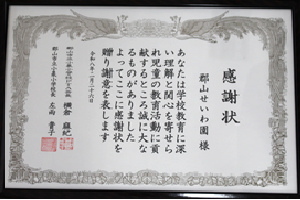 感謝状
郡山せいわ園様
あなたは学校教育に深
い理解と関心を寄せら
れ現童の教育活動に貢
献するところ誠に大な
るものがありました
よってここに感謝状を
贈り謝意を表します
令和八年二月二十六日
郡山市立小泉小学校長